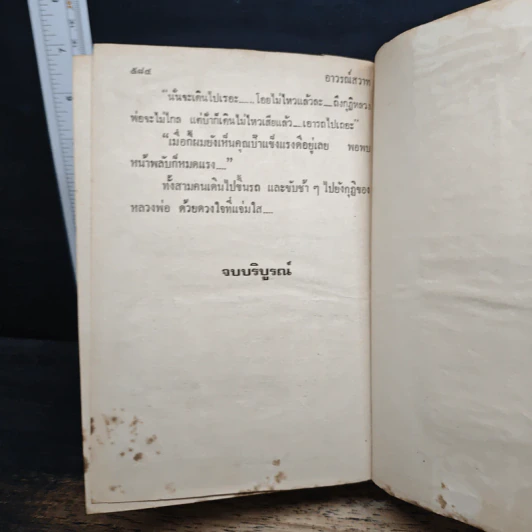 ๕๘๔ อาวรณ์สวาท
"นั่นจะเดินไปเรอะ.... โอยไม่ไหวแล้วละ....ถึงกุฏิหลวง
พ่อจะไม่ไกล แต่ป้าก็เดินไม่ไหวเสียแล้ว....เอารถไปเถอะ"
"เมื่อกี้ผมยังเห็นคุณป้าแข็งแรงดีอยู่เลย พอพบ
หน้าพลับก็หมดแรง...."
ทั้งสามคนเดินไปขึ้นรถ และขับช้า ๆ ไปยังกุฏิของ
หลวงพ่อ ด้วยดวงใจที่แจ่มใส....
จบบริบูรณ์